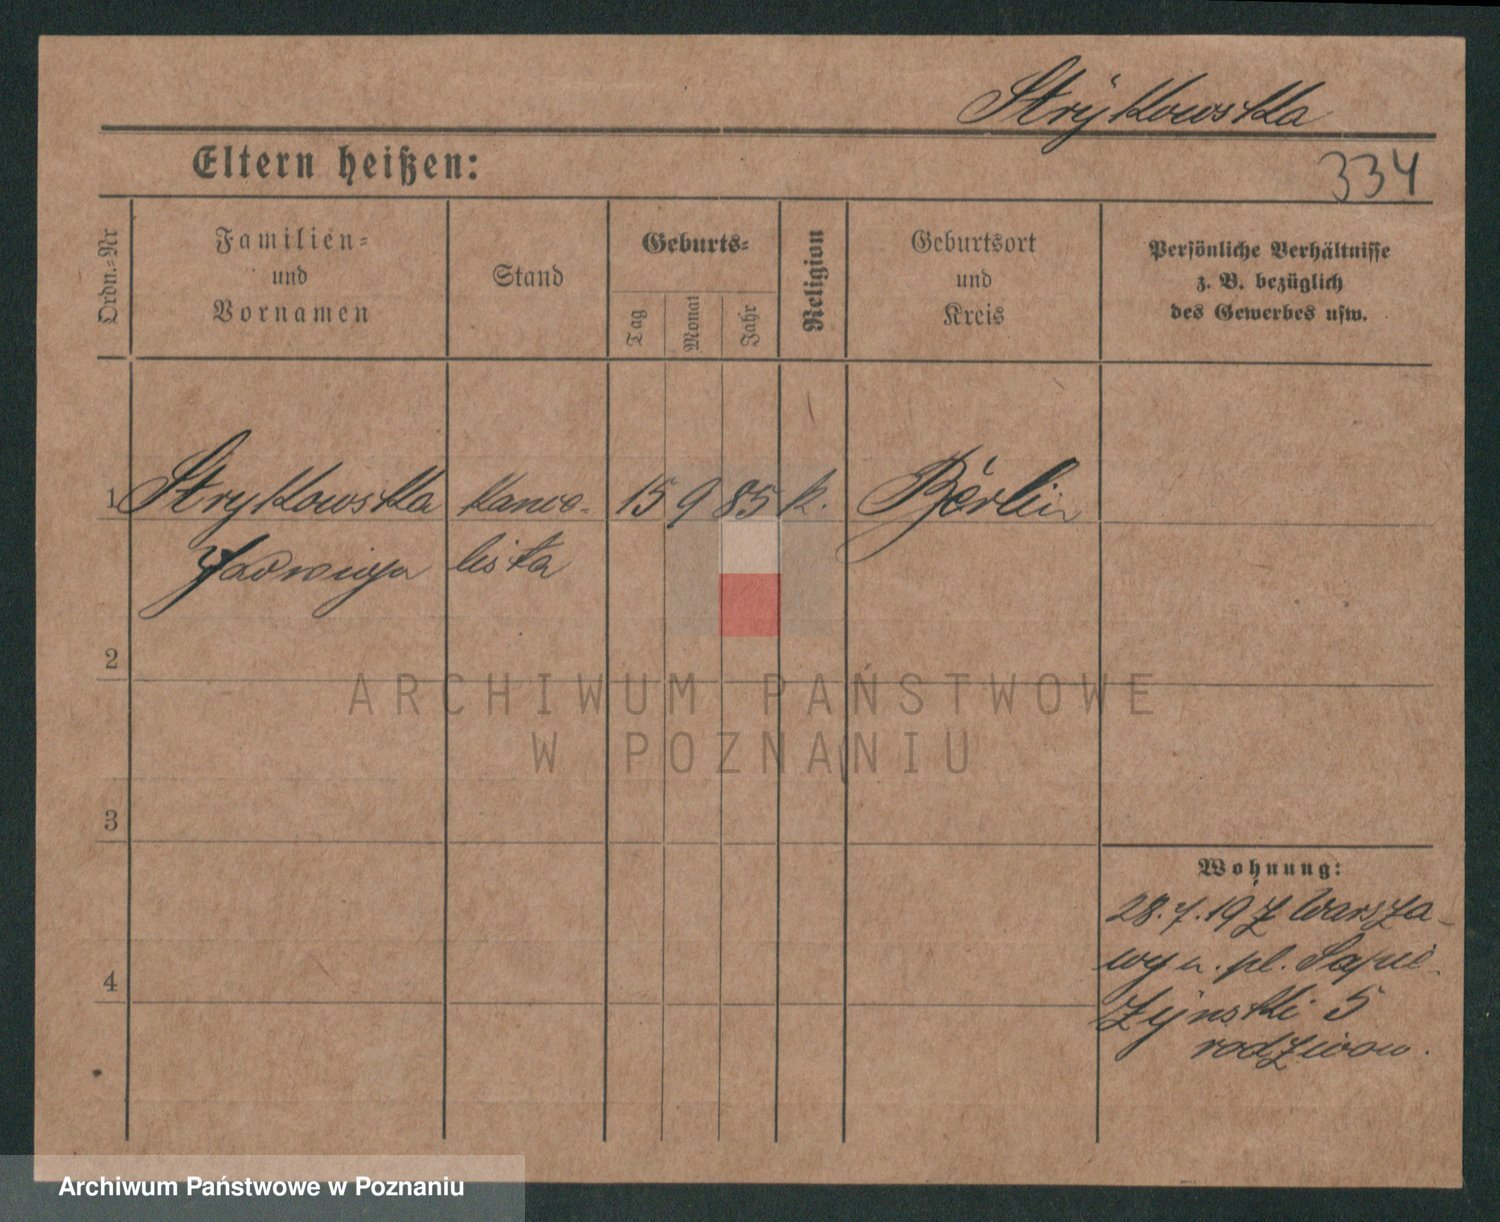 Strykowska
Eltern heißen:
334
Ordn.-Nr
Familien-
und
Vornamen
Stand
Geburts-
Tag
Monat
Jahr
Religion
Geburtsort
und
Kreis
Persönliche Verhältnisse
z. B. bezüglich
des Gewerbes usw.
1 Strykowska kance- 15 9 85 k. Berlin
Jadwiga listka
2
ARCHIWUM PAŃSTWOWE
W POZNANIU
3
Wohnung:
28.7.19 z Warsza-
wy n. pl. Sapie-
żyński 5
4
Archiwum Państwowe w Poznaniu